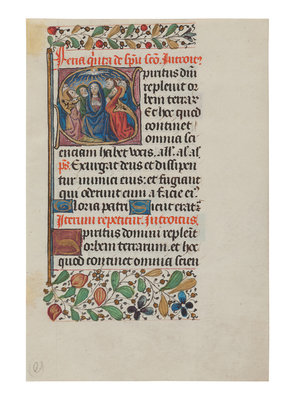 Feria quita de spū scō. Introit⁹
Spiritus dñi
repleuit or
bem terrar
Et hoc quod
continet
omnia sci
enciam habet vocis. all'. al. al.
ps Exurgat deus et dissipen
tur inimici eius: et fugiant
qui oderunt eum a facie ei⁹
Gloria patri Sicut erat
Iterum repetitur. Introitus.
Spiritus domini repleuit
orbem terrarum. et hoc
quod continet omnia scien